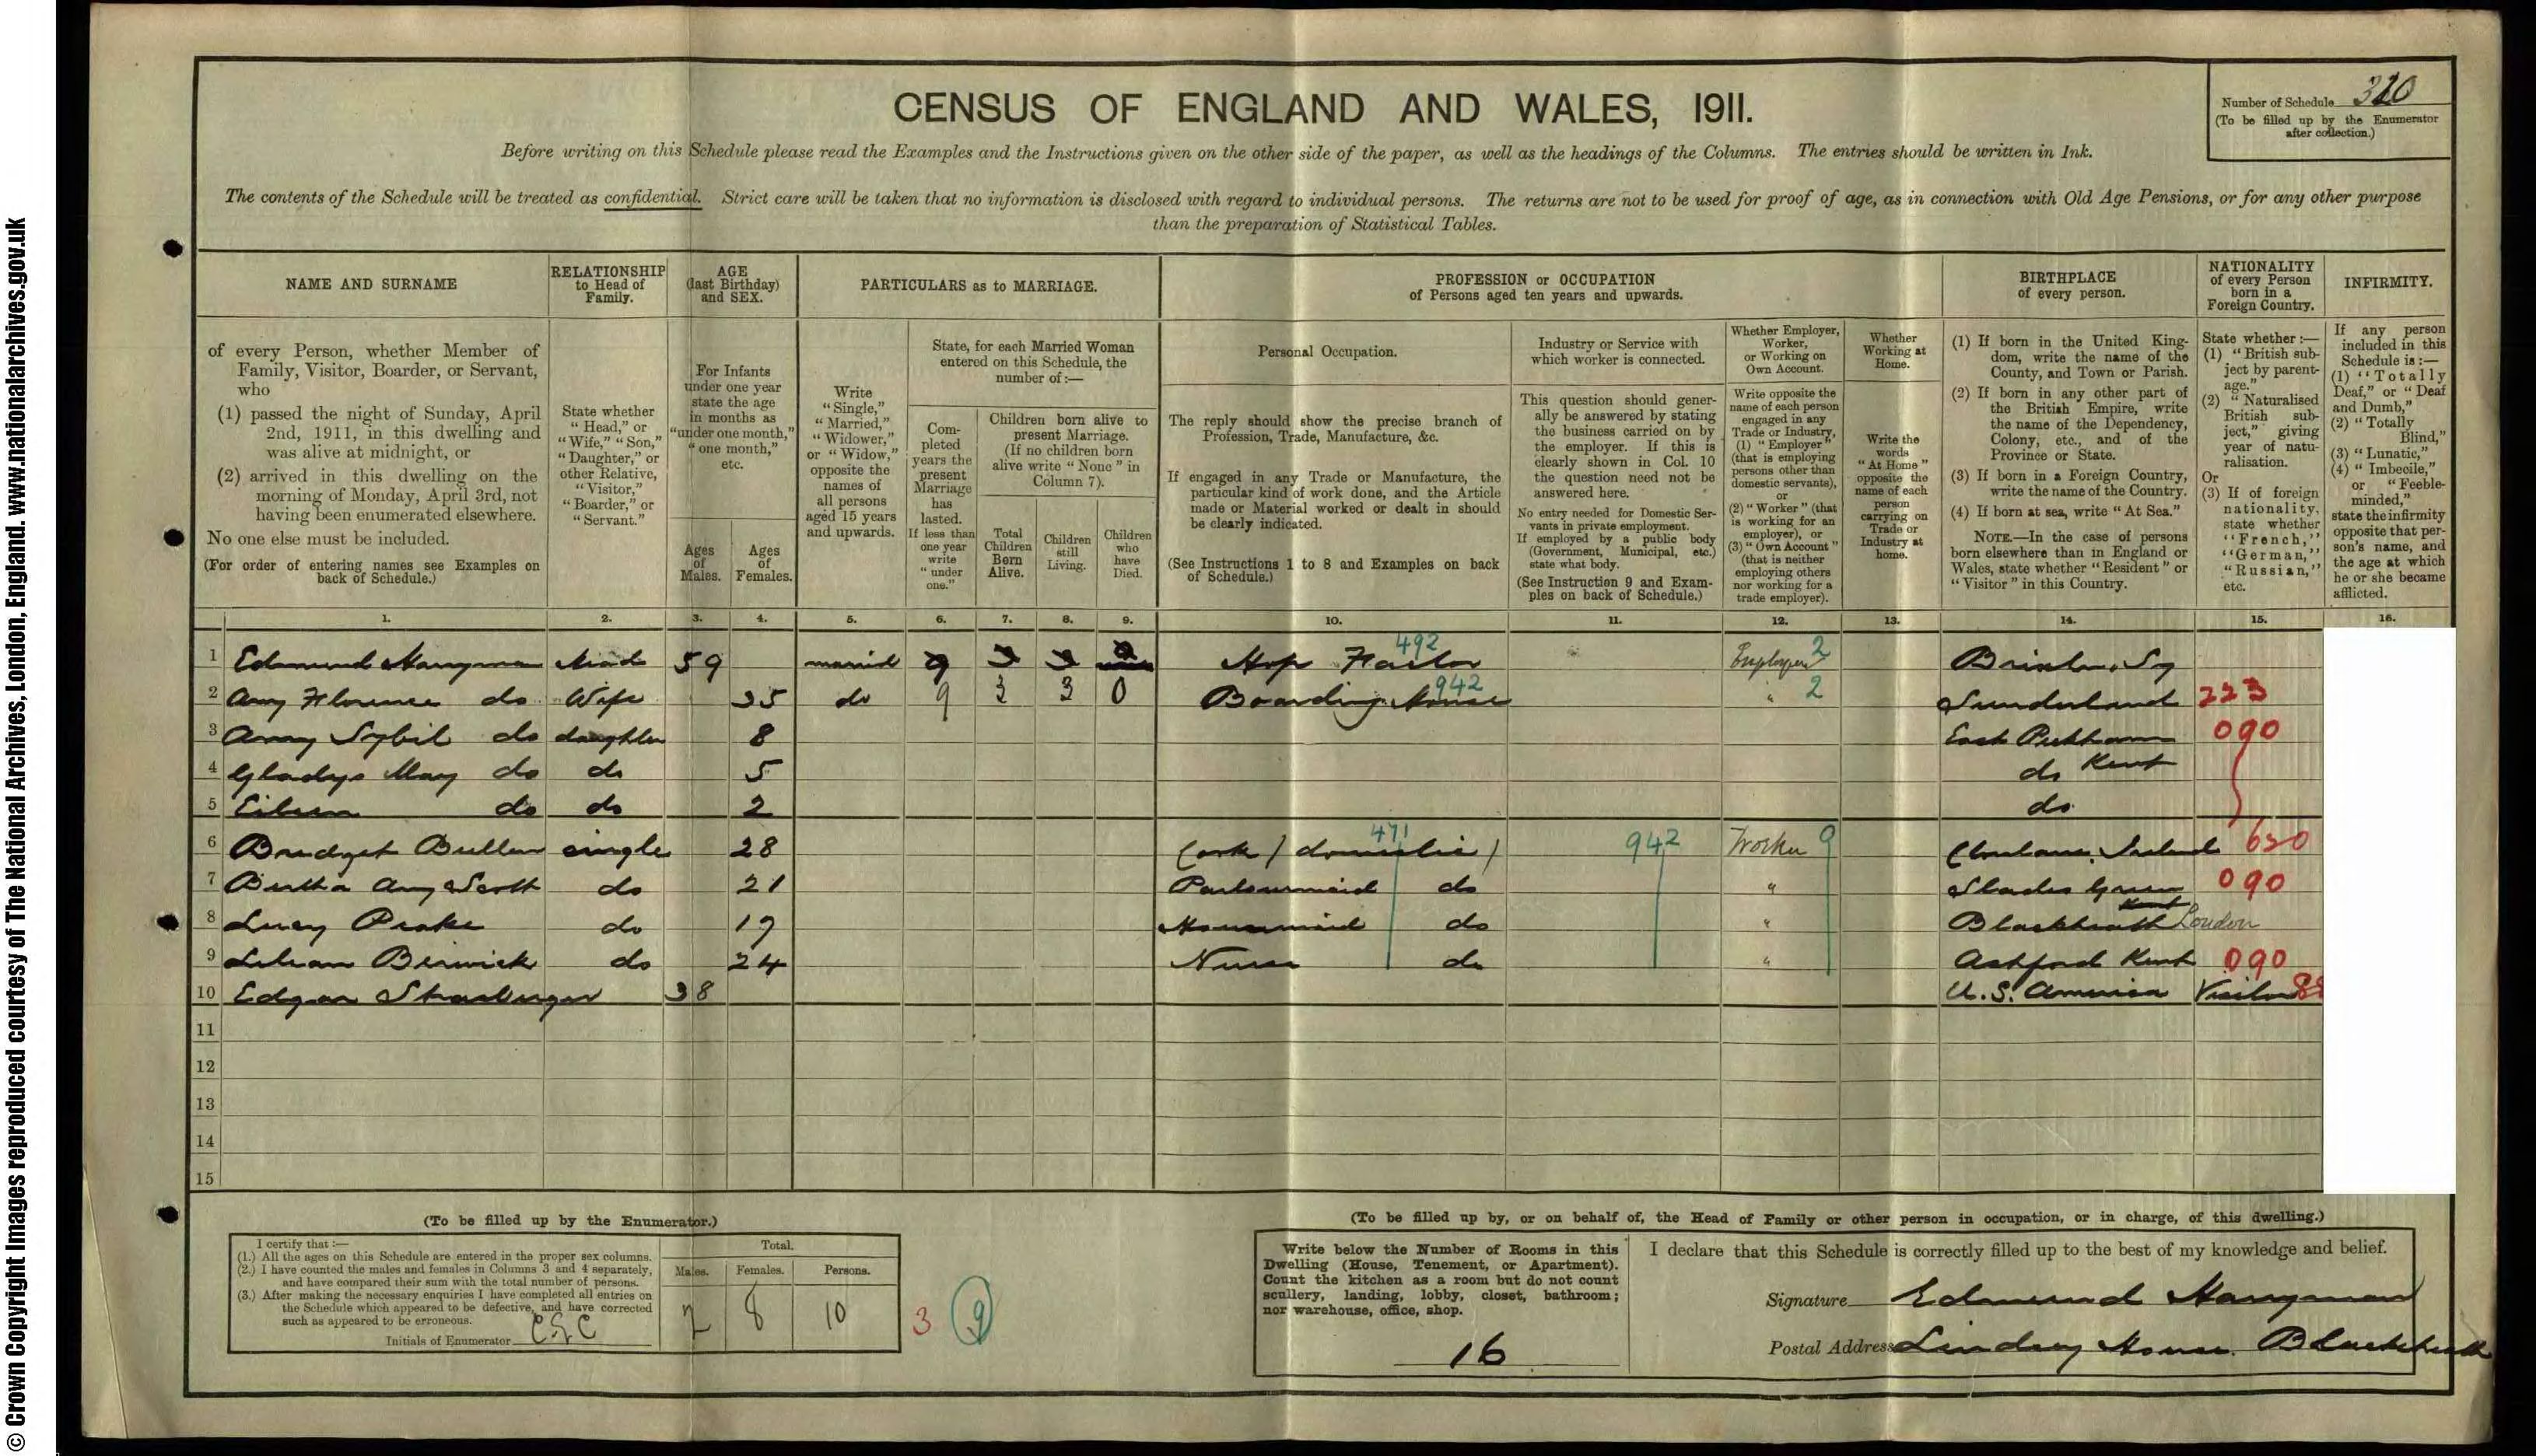 © Crown Copyright Images reproduced courtesy of The National Archives, London, England. www.nationalarchives.gov.uk
CENSUS OF ENGLAND AND WALES, 1911.
Number of Schedule 320
(To be filled up by the Enumerator after collection.)
Before writing on this Schedule please read the Examples and the Instructions given on the other side of the paper, as well as the headings of the Columns. The entries should be written in Ink.
The contents of the Schedule will be treated as confidential. Strict care will be taken that no information is disclosed with regard to individual persons. The returns are not to be used for proof of age, as in connection with Old Age Pensions, or for any other purpose
than the preparation of Statistical Tables.
NAME AND SURNAME
RELATIONSHIP
to Head of
Family.
AGE
(last Birthday)
and SEX.
PARTICULARS as to MARRIAGE.
PROFESSION or OCCUPATION
of Persons aged ten years and upwards.
BIRTHPLACE
of every person.
NATIONALITY
of every Person
born in a
Foreign Country.
INFIRMITY.
of every Person, whether Member of
Family, Visitor, Boarder, or Servant,
who
(1) passed the night of Sunday, April
2nd, 1911, in this dwelling and
was alive at midnight, or
(2) arrived in this dwelling on the
morning of Monday, April 3rd, not
having been enumerated elsewhere.
No one else must be included.
(For order of entering names see Examples on
back of Schedule.)
State whether
"Head," or
"Wife," "Son,"
"Daughter," or
other Relative,
"Visitor,"
"Boarder," or
"Servant."
For Infants
under one year
state the age
in months as
"under one month,"
"one month,"
etc.
Ages
of
Males.
Ages
of
Females.
Write
"Single,"
"Married,"
"Widower,"
or "Widow,"
opposite the
names of
all persons
aged 15 years
and upwards.
State, for each Married Woman
entered on this Schedule, the
number of:—
Com-
pleted
years the
present
Marriage
has
lasted.
If less than
one year
write
"under
one."
Children born alive to
present Marriage.
(If no children born
alive write "None" in
Column 7).
Total
Children
Born
Alive.
Children
still
Living.
Children
who
have
Died.
Personal Occupation.
The reply should show the precise branch of
Profession, Trade, Manufacture, &c.
If engaged in any Trade or Manufacture, the
particular kind of work done, and the Article
made or Material worked or dealt in should
be clearly indicated.
(See Instructions 1 to 8 and Examples on back
of Schedule.)
Industry or Service with
which worker is connected.
This question should gener-
ally be answered by stating
the business carried on by
the employer. If this is
clearly shown in Col. 10
the question need not be
answered here.
No entry needed for Domestic Ser-
vants in private employment.
If employed by a public body
(Government, Municipal, etc.)
state what body.
(See Instruction 9 and Exam-
ples on back of Schedule.)
Whether Employer,
Worker,
or Working on
Own Account.
Write opposite the
name of each person
engaged in any
Trade or Industry,
(1) "Employer"
(that is employing
persons other than
domestic servants),
or
(2) "Worker" (that
is working for an
employer), or
(3) "Own Account"
(that is neither
employing others
nor working for a
trade employer).
Whether
Working at
Home.
Write the
words
"At Home"
opposite the
name of each
person
carrying on
Trade or
Industry at
home.
(1) If born in the United King-
dom, write the name of the
County, and Town or Parish.
(2) If born in any other part of
the British Empire, write
the name of the Dependency,
Colony, etc., and of the
Province or State.
(3) If born in a Foreign Country,
write the name of the Country.
(4) If born at sea, write "At Sea."
NOTE.—In the case of persons
born elsewhere than in England or
Wales, state whether "Resident" or
"Visitor" in this Country.
State whether :—
(1) "British sub-
ject by parent-
age."
(2) "Naturalised
British sub-
ject," giving
year of natu-
ralisation.
Or
(3) If of foreign
nationality,
state whether
"French,"
"German,"
"Russian,"
etc.
If any person
included in this
Schedule is :—
(1) "Totally
Deaf," or "Deaf
and Dumb,"
(2) "Totally
Blind,"
(3) "Lunatic,"
(4) "Imbecile,"
or "Feeble-
minded,"
state the infirmity
opposite that per-
son's name, and
the age at which
he or she became
afflicted.
1. 2. 3. 4. 5. 6. 7. 8. 9. 10. 11. 12. 13. 14. 15. 16.
1 Edmund Harryman Head 59 married 9 3 3 0 Hop Factor 492 Employer 2
2 Amy Florence do Wife 35 do 9 3 3 0 Boarding House 942 " 2 Sunderland 223
3 Amy Sybil do daughter 8 East Peckham 090
4 Gladys May do do 5 do Kent
5 Eileen do do 2 do
6 Bridget single 28 Cook (domestic) 471 942 Worker 9 Ireland 630
7 Bertha Amy Scott do 21 Parlourmaid do " Slades Green Kent 090
8 Lucy Peake do 19 Housemaid do " Blackheath London
9 Lilian Berwick do 24 Nurse do " Ashford Kent 090
10 Edgar Strasburger 38 U.S. America Visitor
11
12
13
14
15
(To be filled up by the Enumerator.)
I certify that :—
(1.) All the ages on this Schedule are entered in the proper sex columns.
(2.) I have counted the males and females in Columns 3 and 4 separately,
and have compared their sum with the total number of persons.
(3.) After making the necessary enquiries I have completed all entries on
the Schedule which appeared to be defective, and have corrected
such as appeared to be erroneous.
Initials of Enumerator
Total.
Males. Females. Persons.
2 8 10
3 9
(To be filled up by, or on behalf of, the Head of Family or other person in occupation, or in charge, of this dwelling.)
Write below the Number of Rooms in this
Dwelling (House, Tenement, or Apartment).
Count the kitchen as a room but do not count
scullery, landing, lobby, closet, bathroom;
nor warehouse, office, shop.
16
I declare that this Schedule is correctly filled up to the best of my knowledge and belief.
Signature Edmund Harryman
Postal Address Lindsey House. Blackheath